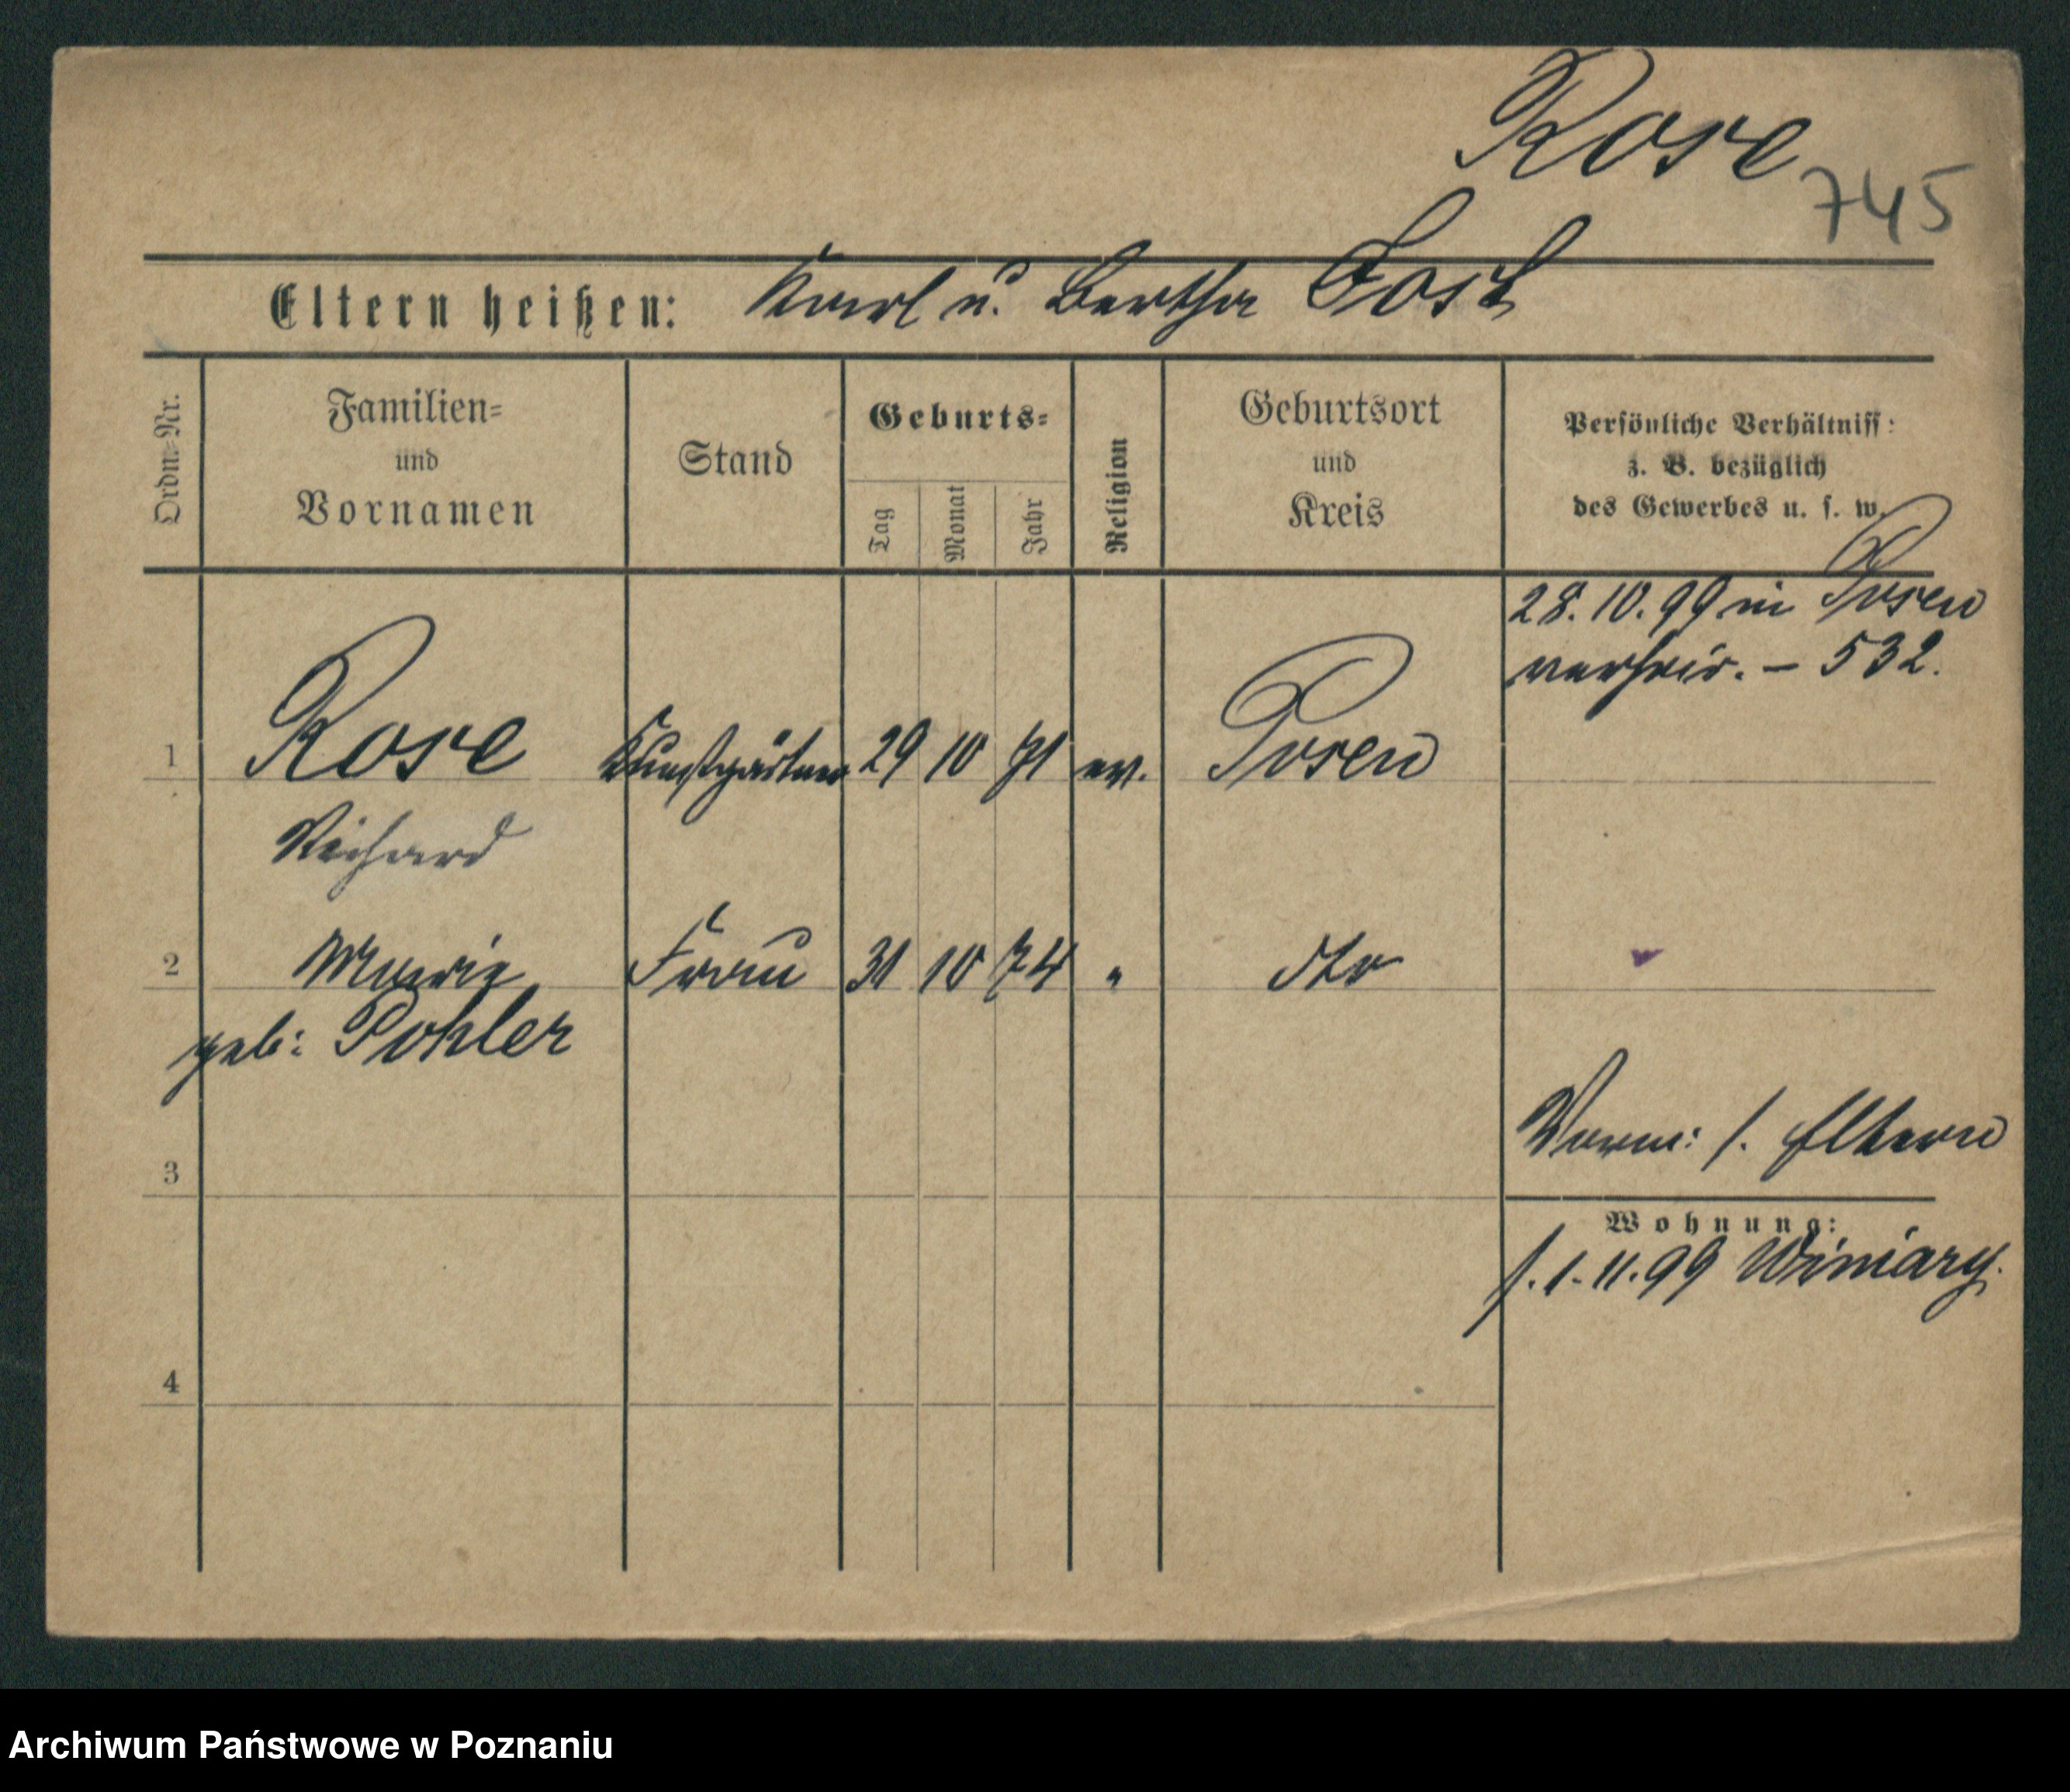 Rose
745
Eltern heißen: Karl u. Bertha
Ordn.-Nr.
Familien-
und
Vornamen
Stand
Geburts-
Tag
Monat
Jahr
Religion
Geburtsort
und
Kreis
Persönliche Verhältniss:
z. B. bezüglich
des Gewerbes u. s. w.
28.10.99 in Posen
verheir. – 532.
1 Rose Kunstgärtner 29 10 71 ev. Posen
Richard
2 Marie Frau 31 10 74 " dto
geb: Pohler
Vorm: s. Eltern
3
Wohnung:
s. 1.11.99 Winiary.
4
Archiwum Państwowe w Poznaniu